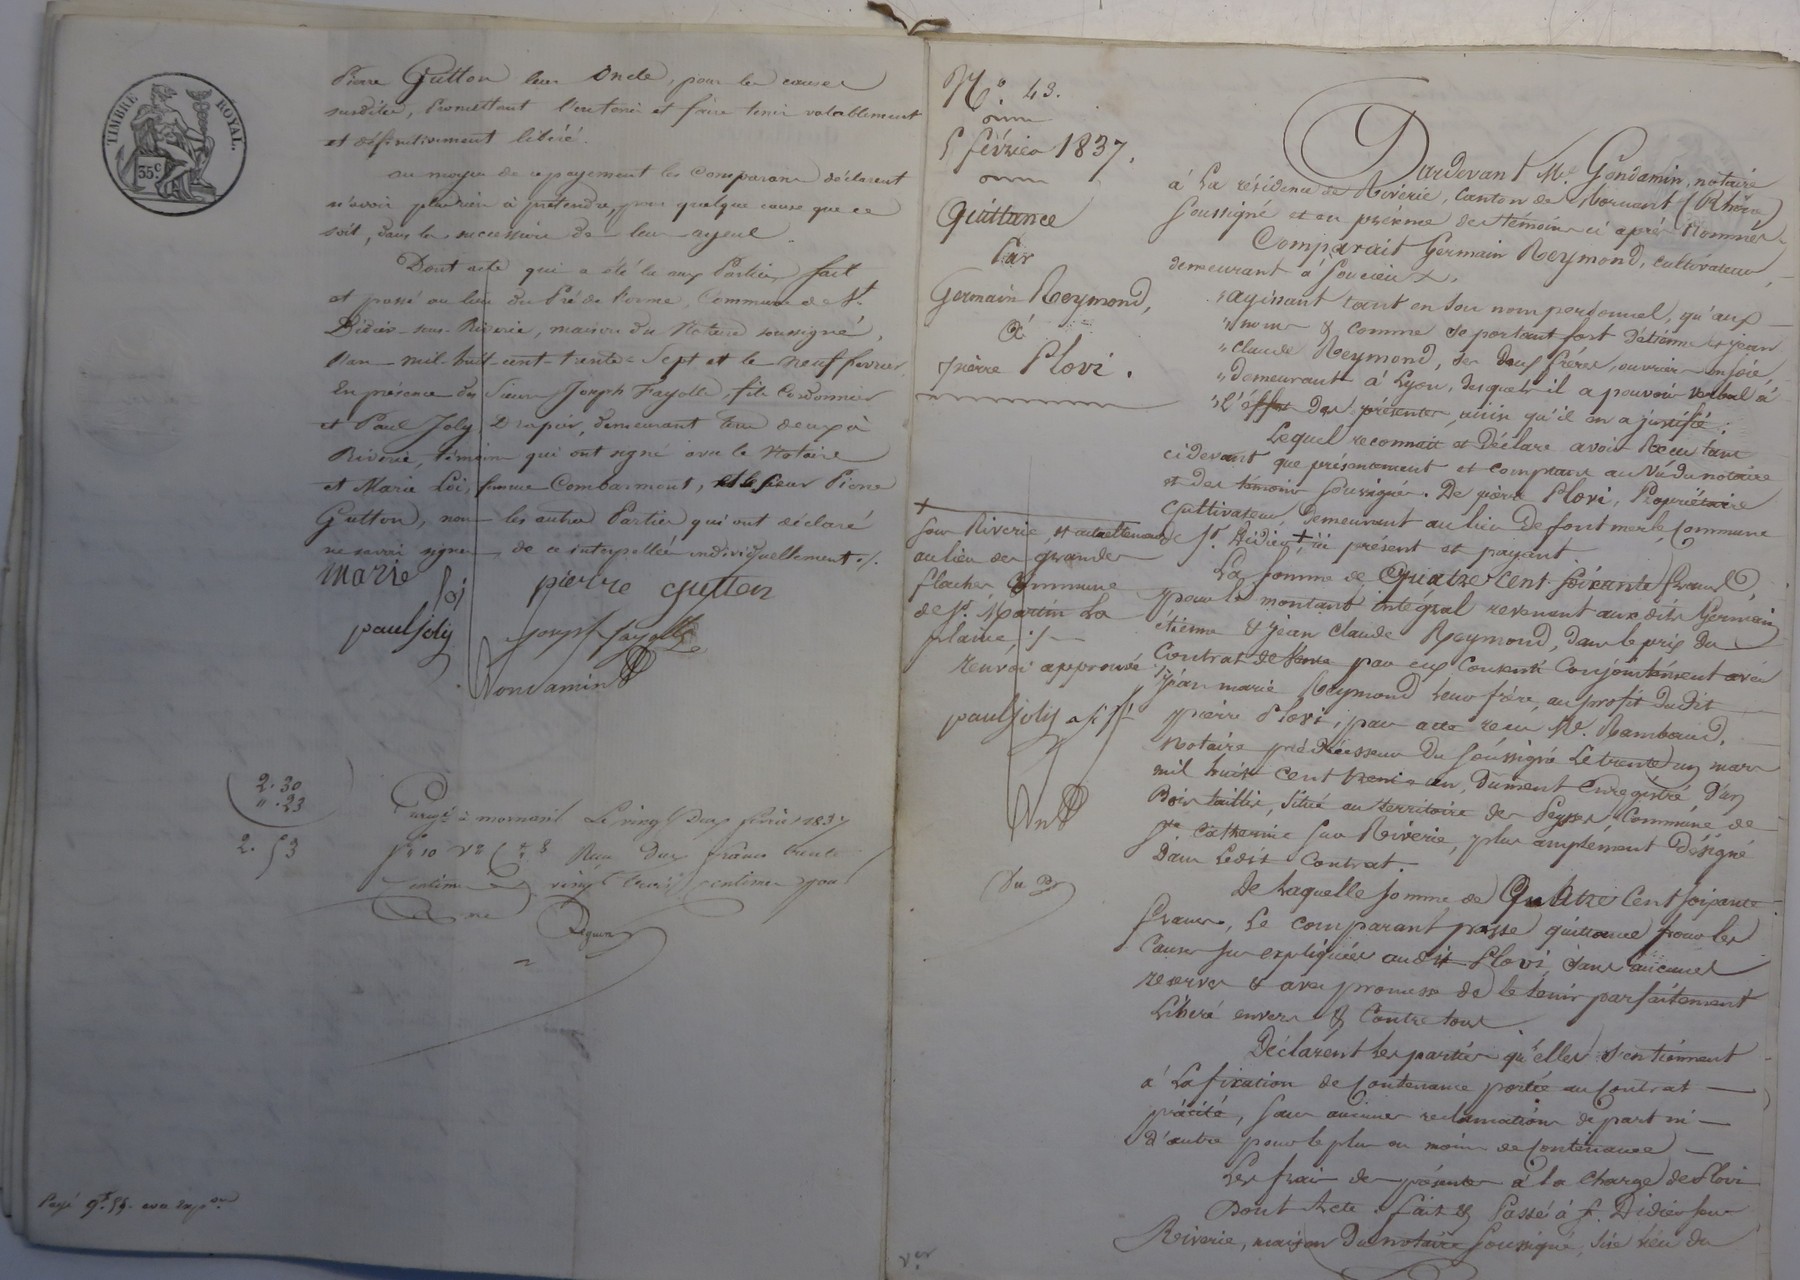 TIMBRE ROYAL.
35 c.
Pierre Gutton leur oncle, pour les causes
susdites, promettant l'en tenir et faire tenir valablement
et définitivement libéré.
au moyen de ce payement les comparans déclarent
n'avoir plus rien à prétendre, pour quelque cause que ce
soit, dans la succession de leur ayeul.
Dont acte qui a été lu aux Parties, fait
et passé au lieu du Pré de Forme, Commune de St.
Didier-sous-Riverie, maison du Notaire soussigné,
l'an mil-huit-cent-trente-Sept et le neuf février
En présence du Sieur Joseph Fayolle, fils Cordonnier
et Paul Joly Drapier, demeurant tous deux à
Riverie, témoins qui ont signé avec le Notaire
et Marie Loi, femme Combarmont, et le sieur Pierre
Gutton, non les autres Parties qui ont déclaré
ne savoir signer de ce interpellées individuellement ./.
marie loi pierre gutton
paul joly joseph fayolle
Condamin
2.30
".23
2.53
Enregé à mornant le vingt deux février 1837
fo 10 Reçu deux francs trente
centimes vingt trois centimes pour
Payé 9f.
No. 43.
5 février 1837.
Quittance
Par
Germain Reymond,
à
pierre Plovi.
Pardevant Me. Condamin, notaire
à la résidence de Riverie, canton de Mornant (Rhône)
soussigné et en présence des témoins ci après nommés
Comparait Germain Reymond, cultivateur,
demeurant à Soucieu
"agissant tant en son nom personnel, qu'aux
"noms & comme se portant fort d'étienne & jean
"claude Reymond, ses deux frères, ouvriers en soie,
"demeurant à Lyon, desquels il a pouvoir verbal à
"l'effet des présentes, ainsi qu'il en a justifié;
Lequel reconnait et déclare avoir Reçu tant
cidevant que présentement et comptant au vû du notaire
et des témoins soussignés. De pierre Plovi, Propriétaire
cultivateur, demeurant au lieu de font merle, Commune
de St. Didier + ici présent et payant
La somme de Quatre cent soixante francs,
pour le montant intégral revenant aux dits Germain
étienne & jean claude Reymond, dans le prix du
Contrat de Vente par eux consenti conjointement avec
jean marie Reymond leur frère, au profit du dit
pierre Plovi, par acte reçu Me. Rambaud,
notaire prédécesseur du soussigné le trente un mars
mil huit cent trente un, dument enregistré, d'un
Bois taillis, situé au territoire des Commune de
Ste. Catherine sur Riverie, plus amplement désigné
dans ledit Contrat.
De laquelle somme de Quatre cent soixante
francs, le comparant passe quittance pour les
causes sus expliquées audit Plovi, sans aucunes
réserves & avec promesse de le tenir parfaitement
Libéré envers & contre tous
Déclarent les parties qu'elles s'en tiennent
à la fixation de contenance portée au contrat
précité, sans aucunes réclamations de part ni
d'autre pour le plus ou moins de contenance
Les frais des présentes à la charge de Plovi
Dont Acte. fait & Passé à St. Didier sous
Riverie, maison du notaire soussigné, sise lieu du
+
sous Riverie, et actuellement
au lieu des grandes
flaches Commune
de St. Martin la
plaine,./.
renvoi approuvé
paul joly